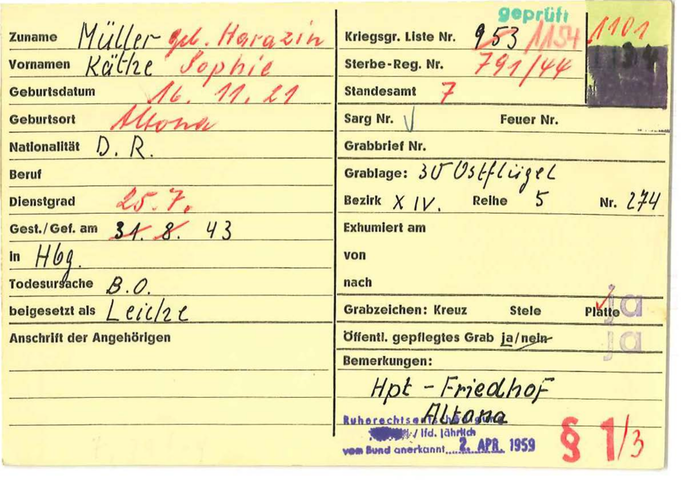 geprüft
Zuname Müller geb. Harazin
Vornamen Käthe Sophie
Geburtsdatum 16. 11. 21
Geburtsort Altona
Nationalität D. R.
Beruf
Dienstgrad 25. 7.
Gest./Gef. am 31. 8. 43
in Hbg.
Todesursache B.O.
beigesetzt als Leiche
Anschrift der Angehörigen
Kriegsgr. Liste Nr. 953 1154 1101
Sterbe-Reg. Nr. 791/44
Standesamt 7
Sarg Nr. Feuer Nr.
Grabbrief Nr.
Grablage: 30 Ostflügel
Bezirk XIV. Reihe 5 Nr. 274
Exhumiert am
von
nach
Grabzeichen: Kreuz Stele Platte ja
Öffentl. gepflegtes Grab ja/nein ja
Bemerkungen:
Hpt - Friedhof
Altona
Ruherechtsentschädigung
/ lfd. jährlich
vom Bund anerkannt 2. APR. 1959
§ 1/3